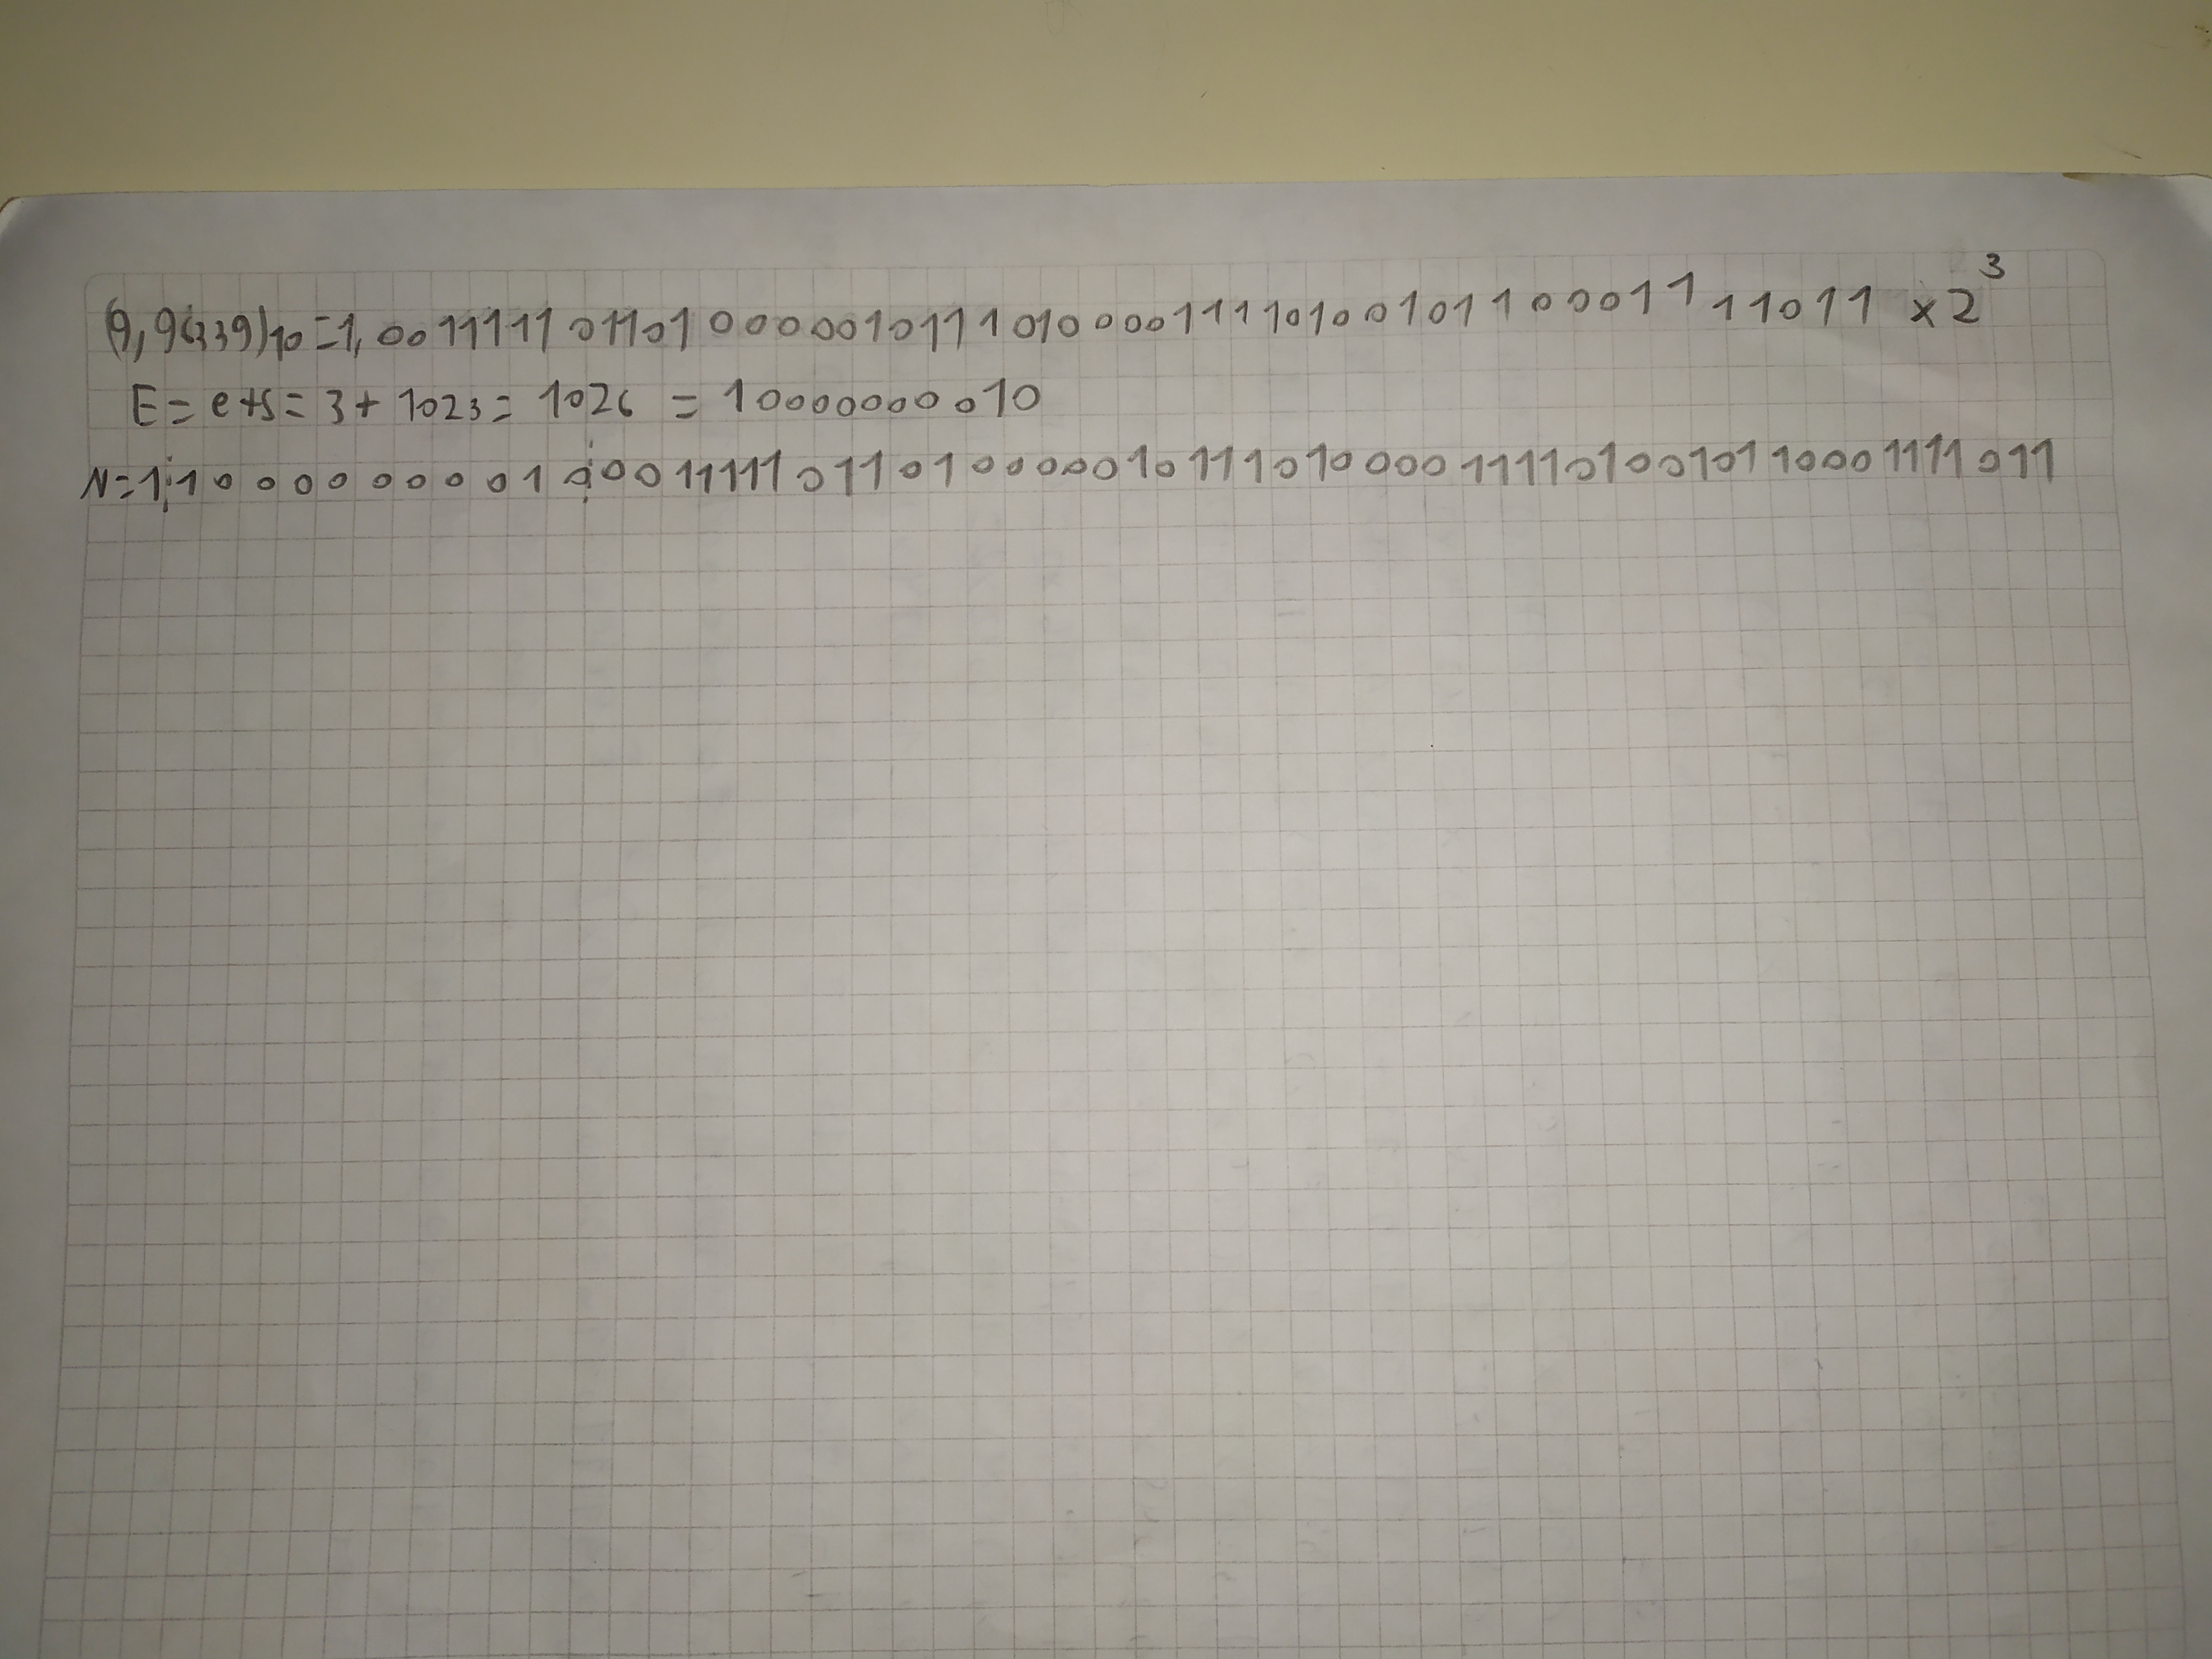 (9,96339)10=1,00111110110100000101110100001111010010110001111011 ×2³
E=e+s=3+1023=1026 = 10000000010
N=1100000000100011111011010000010111010000111101001011 0001111011